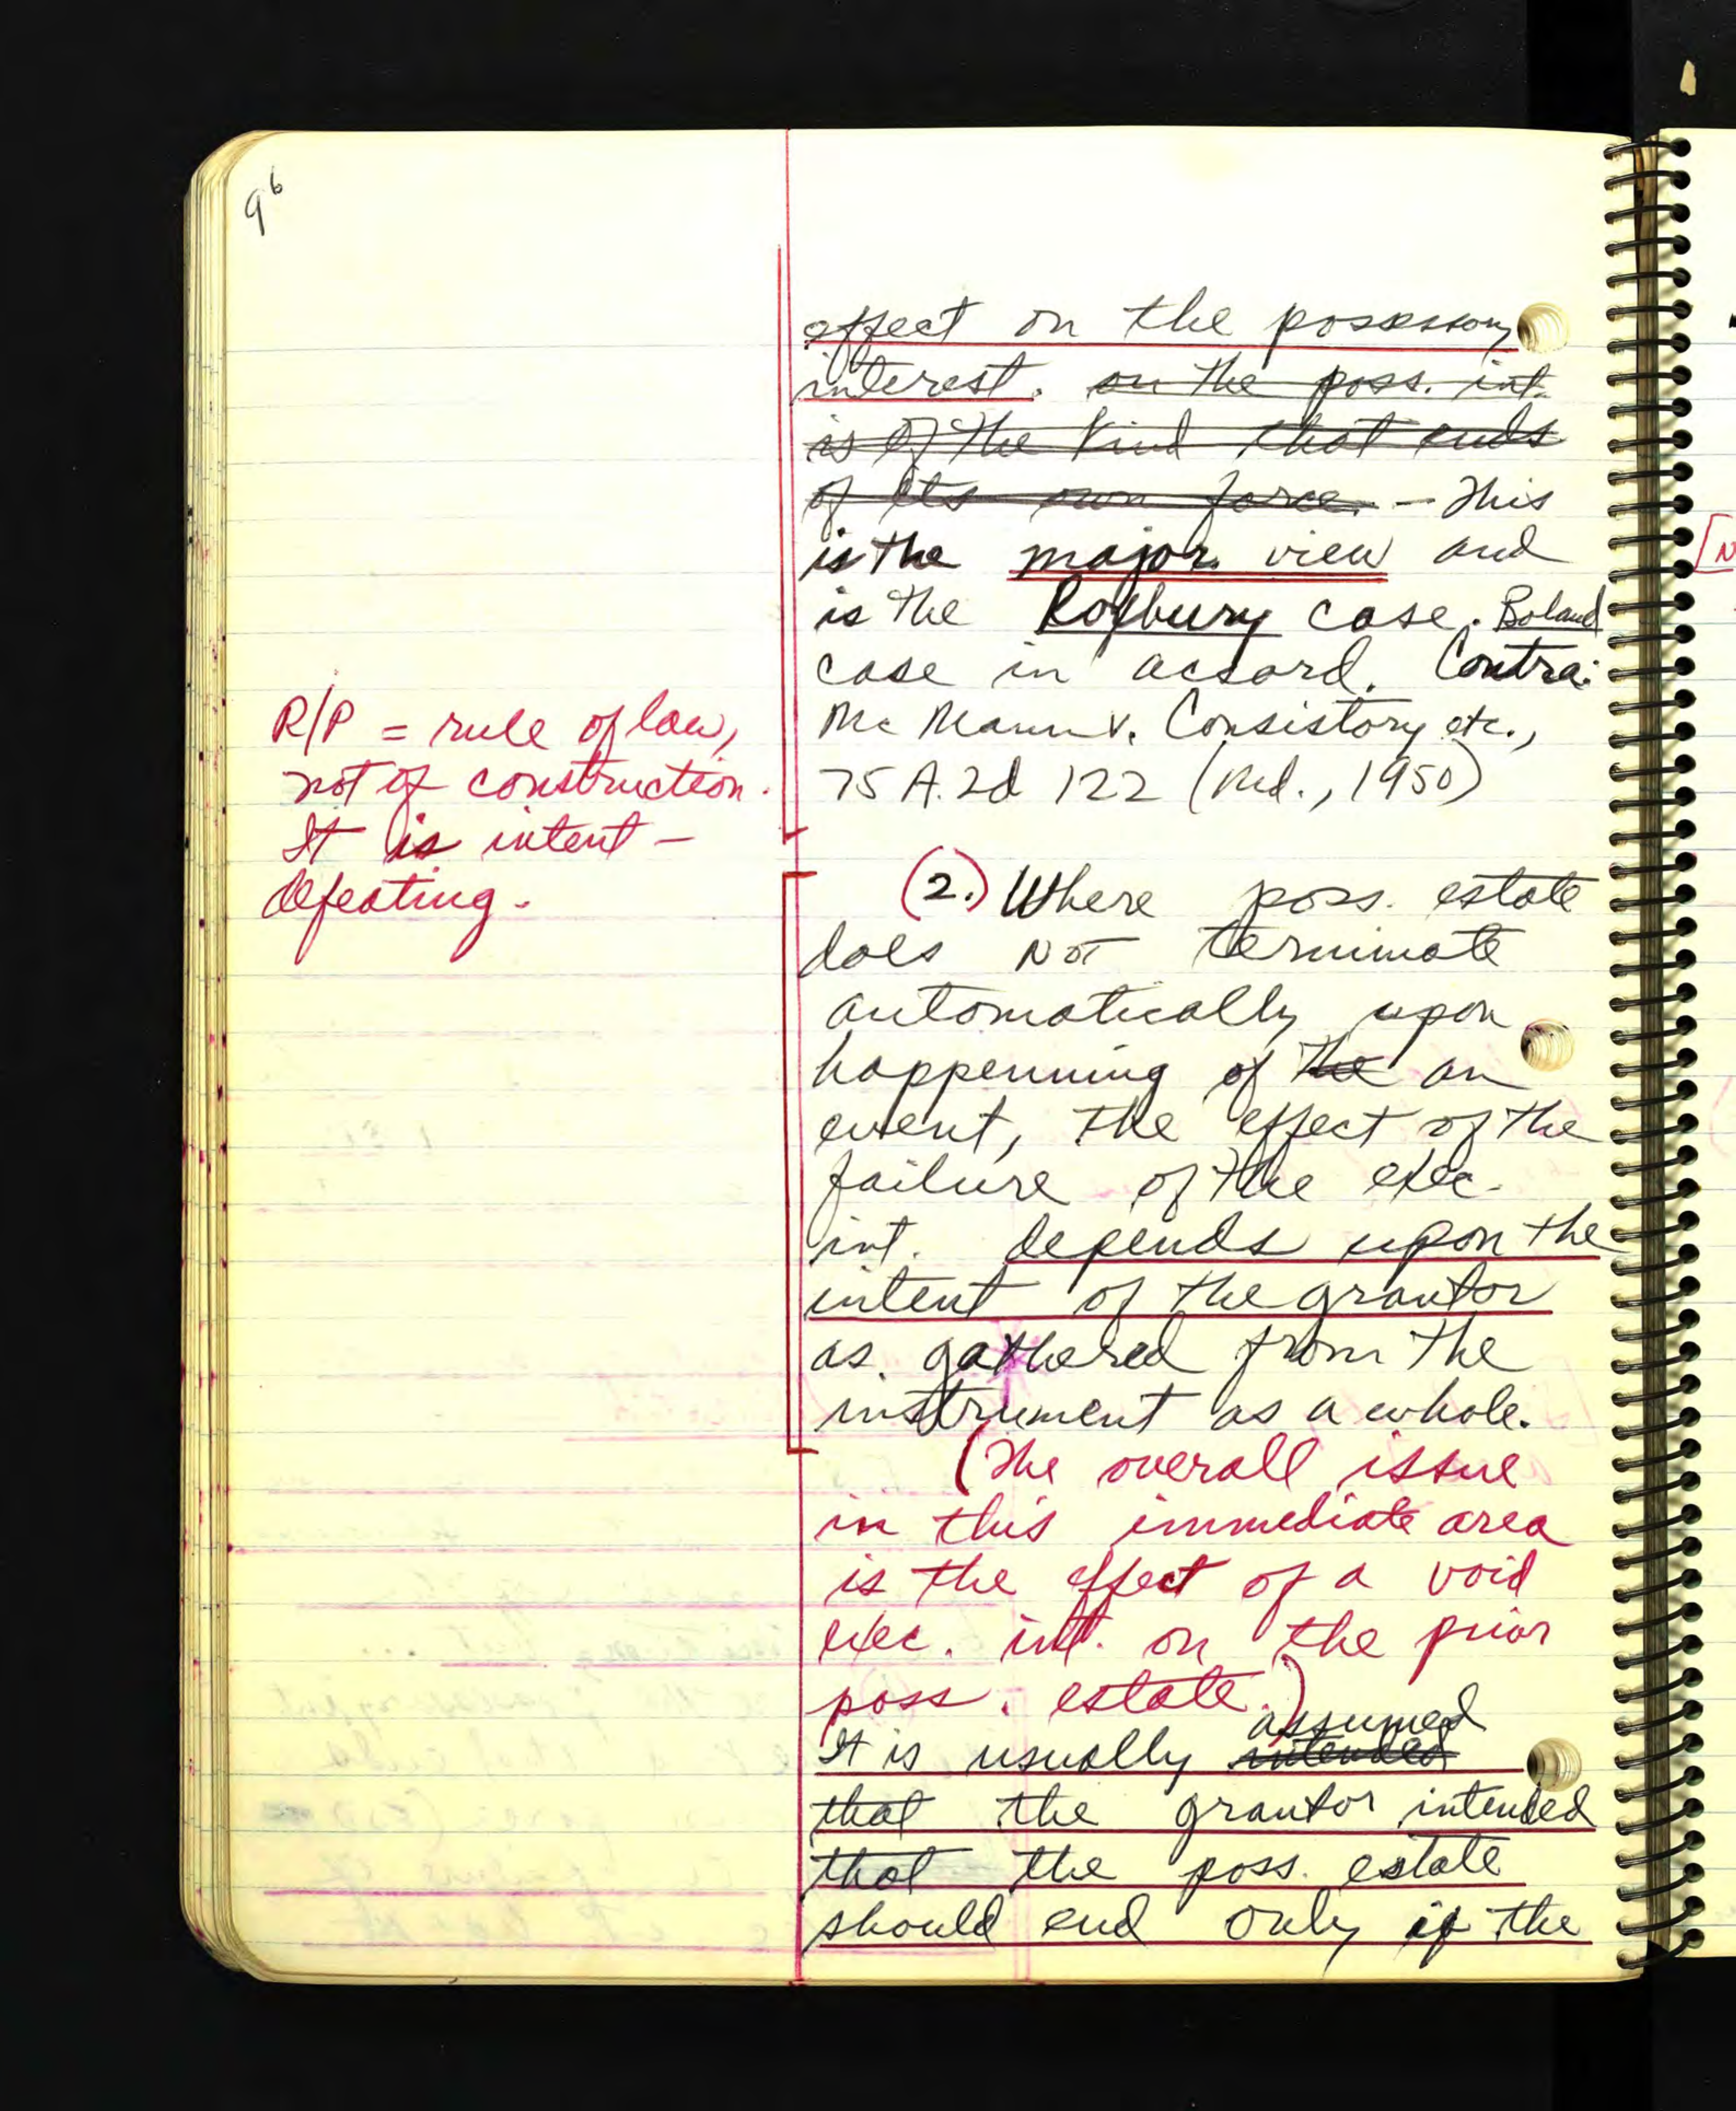 96
effect on the possessory
interest. on the poss. int.
is of the kind that ends
of its own force. - This
is the major. view and
is the Roxbury case. Boland
case in accord. Contra:
Mc Mann v. Consistory etc.,
75 A.2d 122 (Md., 1950)
R/P = rule of law,
not of construction.
It is intent -
defeating.
(2.) Where poss. estate
does NOT terminate
automatically upon
happenning of the an
event, the effect of the
failure of the exec.
int. depends upon the
intent of the grantor
as gathered from the
instrument as a whole.
(The overall issue
in this immediate area
is the effect of a void
exec. int. on the prior
poss. estate.)
assumed
It is usually intended
that the grantor intended
that the poss. estate
should end only if the
[N